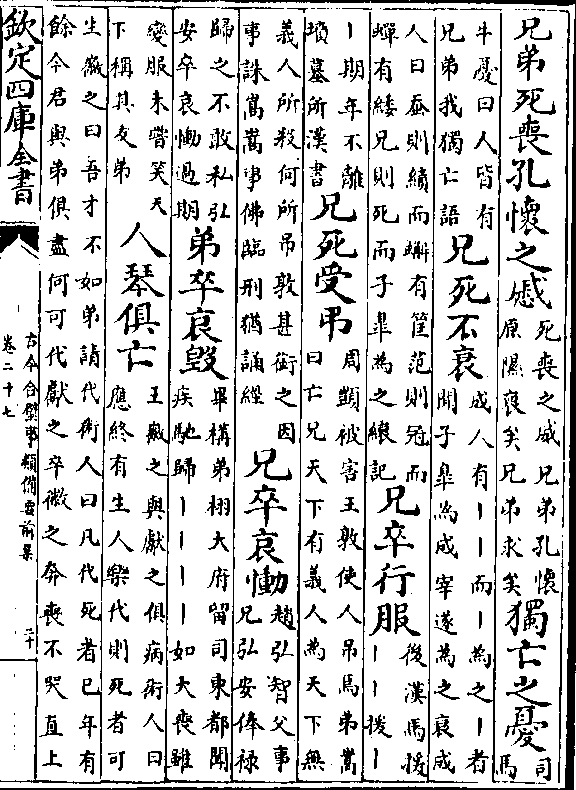 兄弟死喪孔懷之慼死喪之威兄弟孔懷
原隰裒矣兄弟求矣獨亡之憂司
馬
牛憂曰人皆有
兄弟我獨亡語兄死不衰成人有｜｜而｜為之｜者
聞子臯為成宰遂為之衰成
人曰蚕則績而蟹有筐范則冠而
蟬有緌兄則死而子臯為之縗記兄卒行服後漢馬援
｜｜援｜
｜期年不離
墳墓所漢書兄死受弔周顗被害王敦使人吊馬弟嵩
曰亡兄天下有義人為天下無
義人所殺何所吊敦甚銜之因
事誅嵩嵩事佛臨刑猶誦經兄卒哀慟趙弘智父事
兄弘安俸禄
歸之不敢私弘
安卒哀慟過期弟卒哀毁畢構弟栩大府留司東都聞
疾馳歸｜｜｜｜如大喪雖
變服未甞笑天
下稱其友弟人琴俱亡王徽之與獻之俱病術人曰
應終有生人樂代則死者可
生徽之曰吾才不如弟請代術人曰凡代死者已年有
餘今君與弟俱盡何可代獻之卒徽之奔喪不哭直上
欽定四庫全書
古今合璧事類備要前集
卷二十七
二十